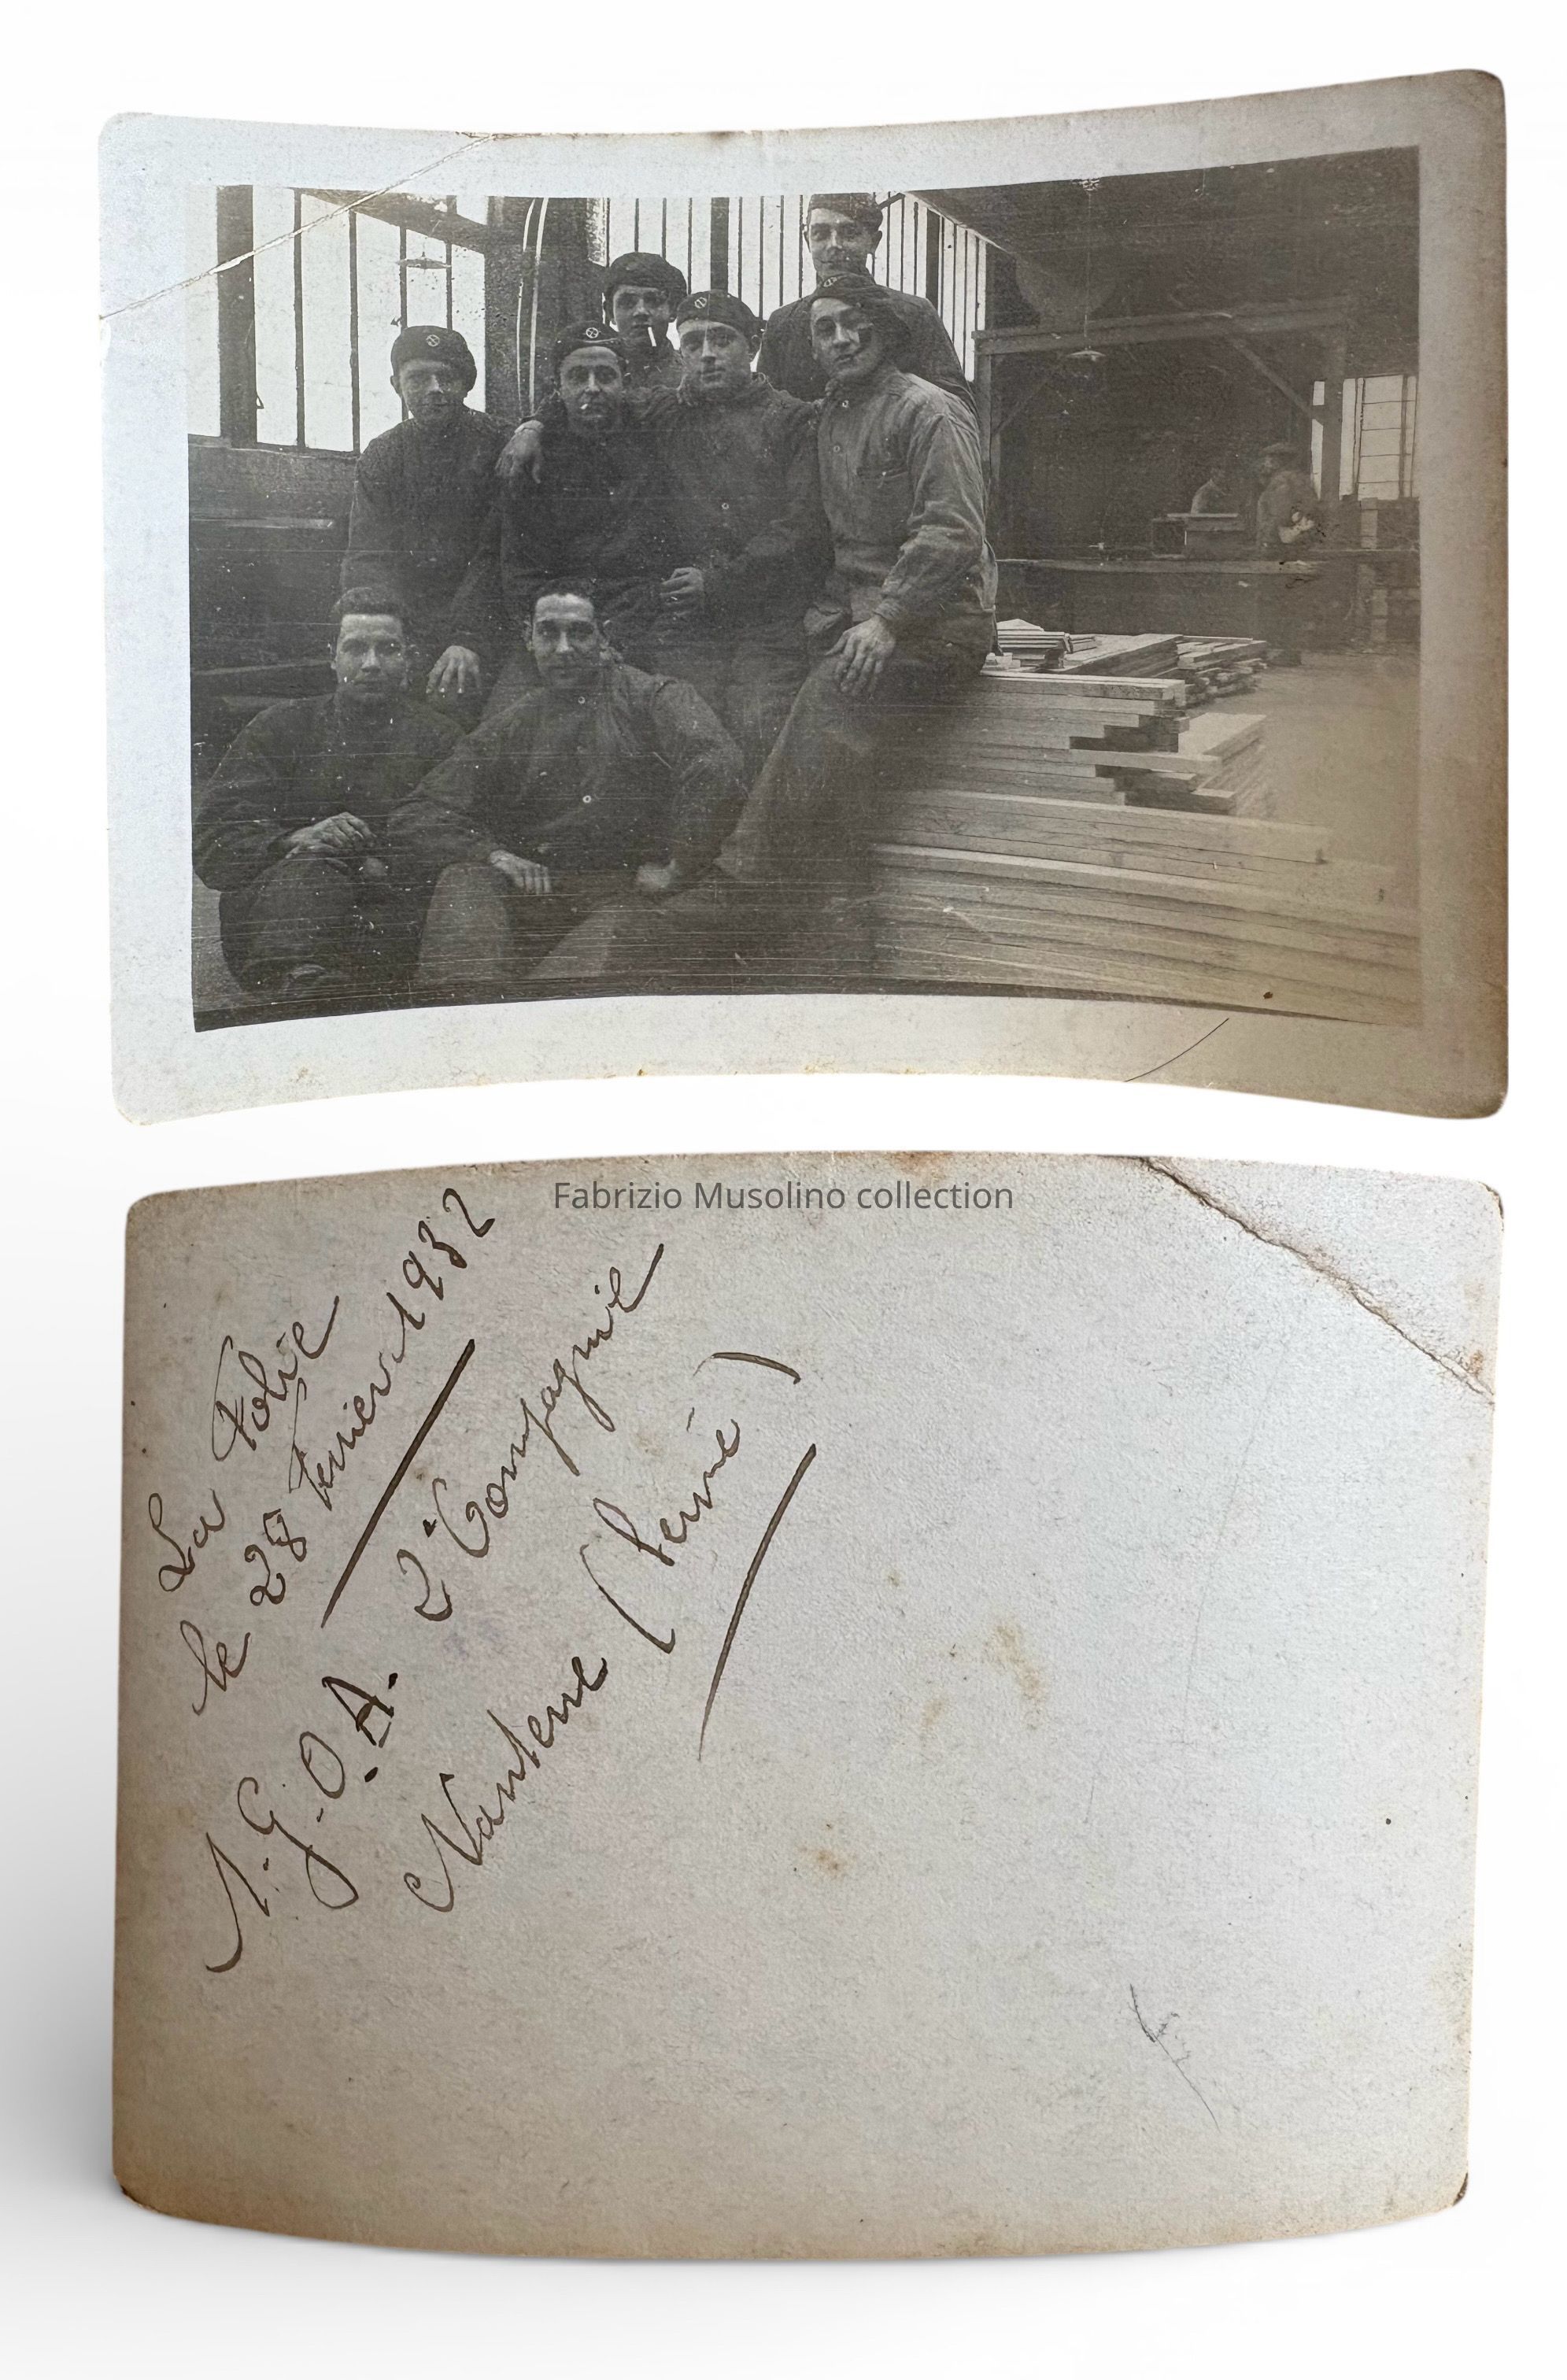 Fabrizio Musolino collection
La Folie
le 28 Fevrier 1932
1.G.O.A. 2e Compagnie
Nanterre (Seine)